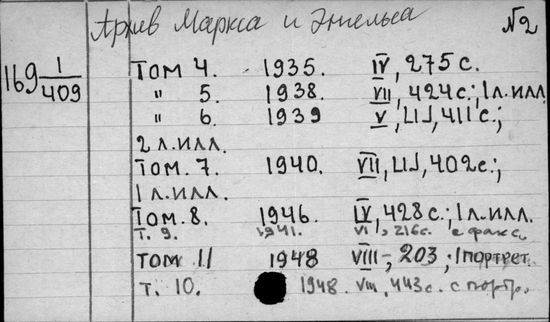 Архив Маркса и Энгельса №2
169 1/409
Том 4. 1935. IV, 275 с.
" 5. 1938. VII, 424 с.; 1 л. илл.
" 6. 1939 V, LIJ, 411 с.;
2 л. илл.
Том. 7. 1940. VII, LIJ, 402 с.;
1 л. илл.
Том. 8. 1946. IV, 428 с.; 1 л. илл.
т. 9. 1941. VI, 216с. с факс.
Том 11 1948 VIII-, 203; 1 портрет.
т. 10. 1948. VIII, 443 с. с портр.